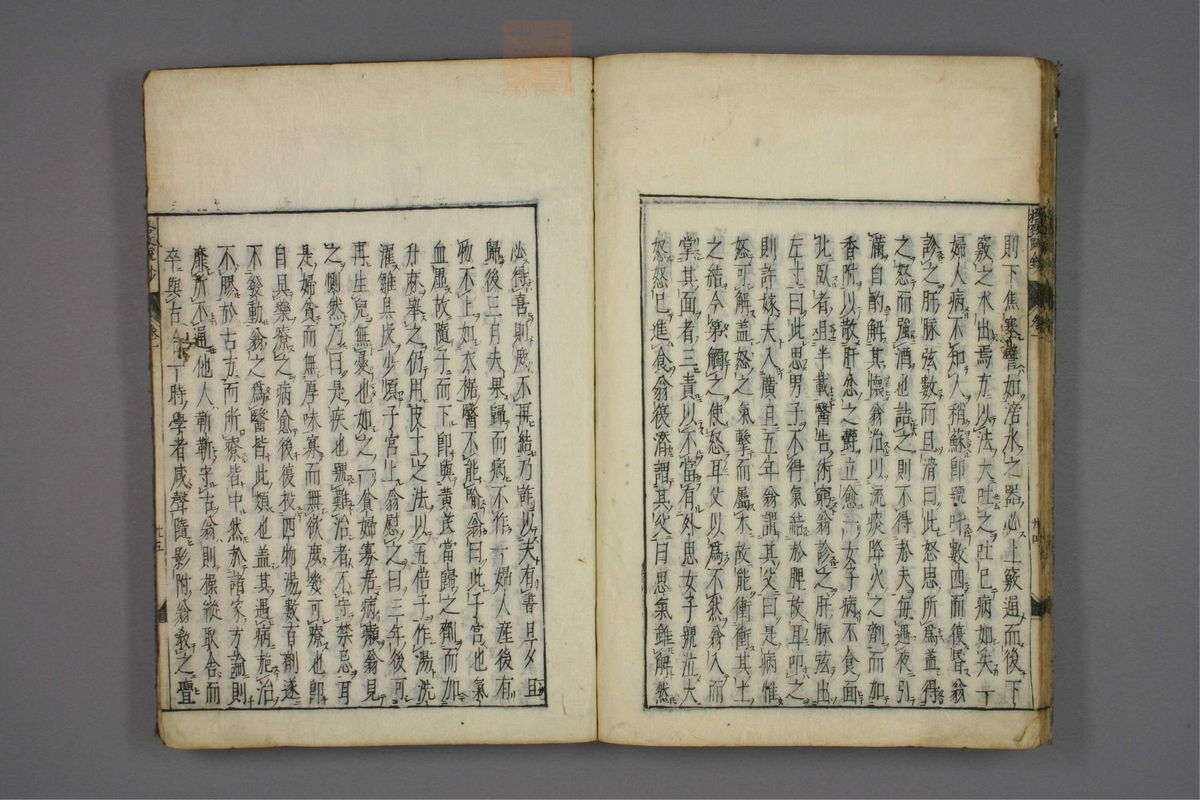 則下焦塞譬如滂水之器必上竅通而後下
竅之水出焉方以法大吐之吐已病如失一
婦人病不知人稍蘇即號叫數四而復昏翁
診之肝脉弦數而且滑曰此怒思所爲蓋得
之怒而強酒也詰之則不得於夫每遇夜引
滿自酌解其懷翁治以流痰降火之劑而加
香附以散肝分之鬱立愈一女子病不食面
北臥者且半載醫告術窮翁診之肝脉弦出
左寸曰此思男子不得氣結於脾故耳叩之
則許嫁夫入廣且五年翁謂其父曰是病惟
怒可解蓋怒之氣擊而屬木故能衝其土
之結今第觸之使怒耳父以爲不然翁入而
掌其面者三責以不當有外思女子號泣大
怒怒已進食翁復潛謂其父曰思氣雖解然
必得喜則庶不再結乃詐以夫有書旦夕且
歸後三月夫果歸而病不作一婦人產後有
物不上如衣裾醫不能喻翁曰此子宮也氣
血虛故隨子而下即與黃芪當歸之劑而加
升麻舉之仍用皮工之法以五倍子作湯洗
濯皺其皮少頃子宮上翁慰之曰三年後可
再生兒無憂也如之一貧婦寡居病癩翁見
之惻然乃曰是疾世號難治者不守禁忌耳
是婦貧而無厚味寡而無欲庶幾可療也即
自具藥療之病愈後復投四物湯數百劑遂
不發動翁之爲醫皆此類也蓋其遇病施治
不膠於古方而所療皆中然於諸家方論則
靡所不通他人靳靳守古翁則操縱取舍而
卒與古合一時學者咸聲隨影附翁敎之亹